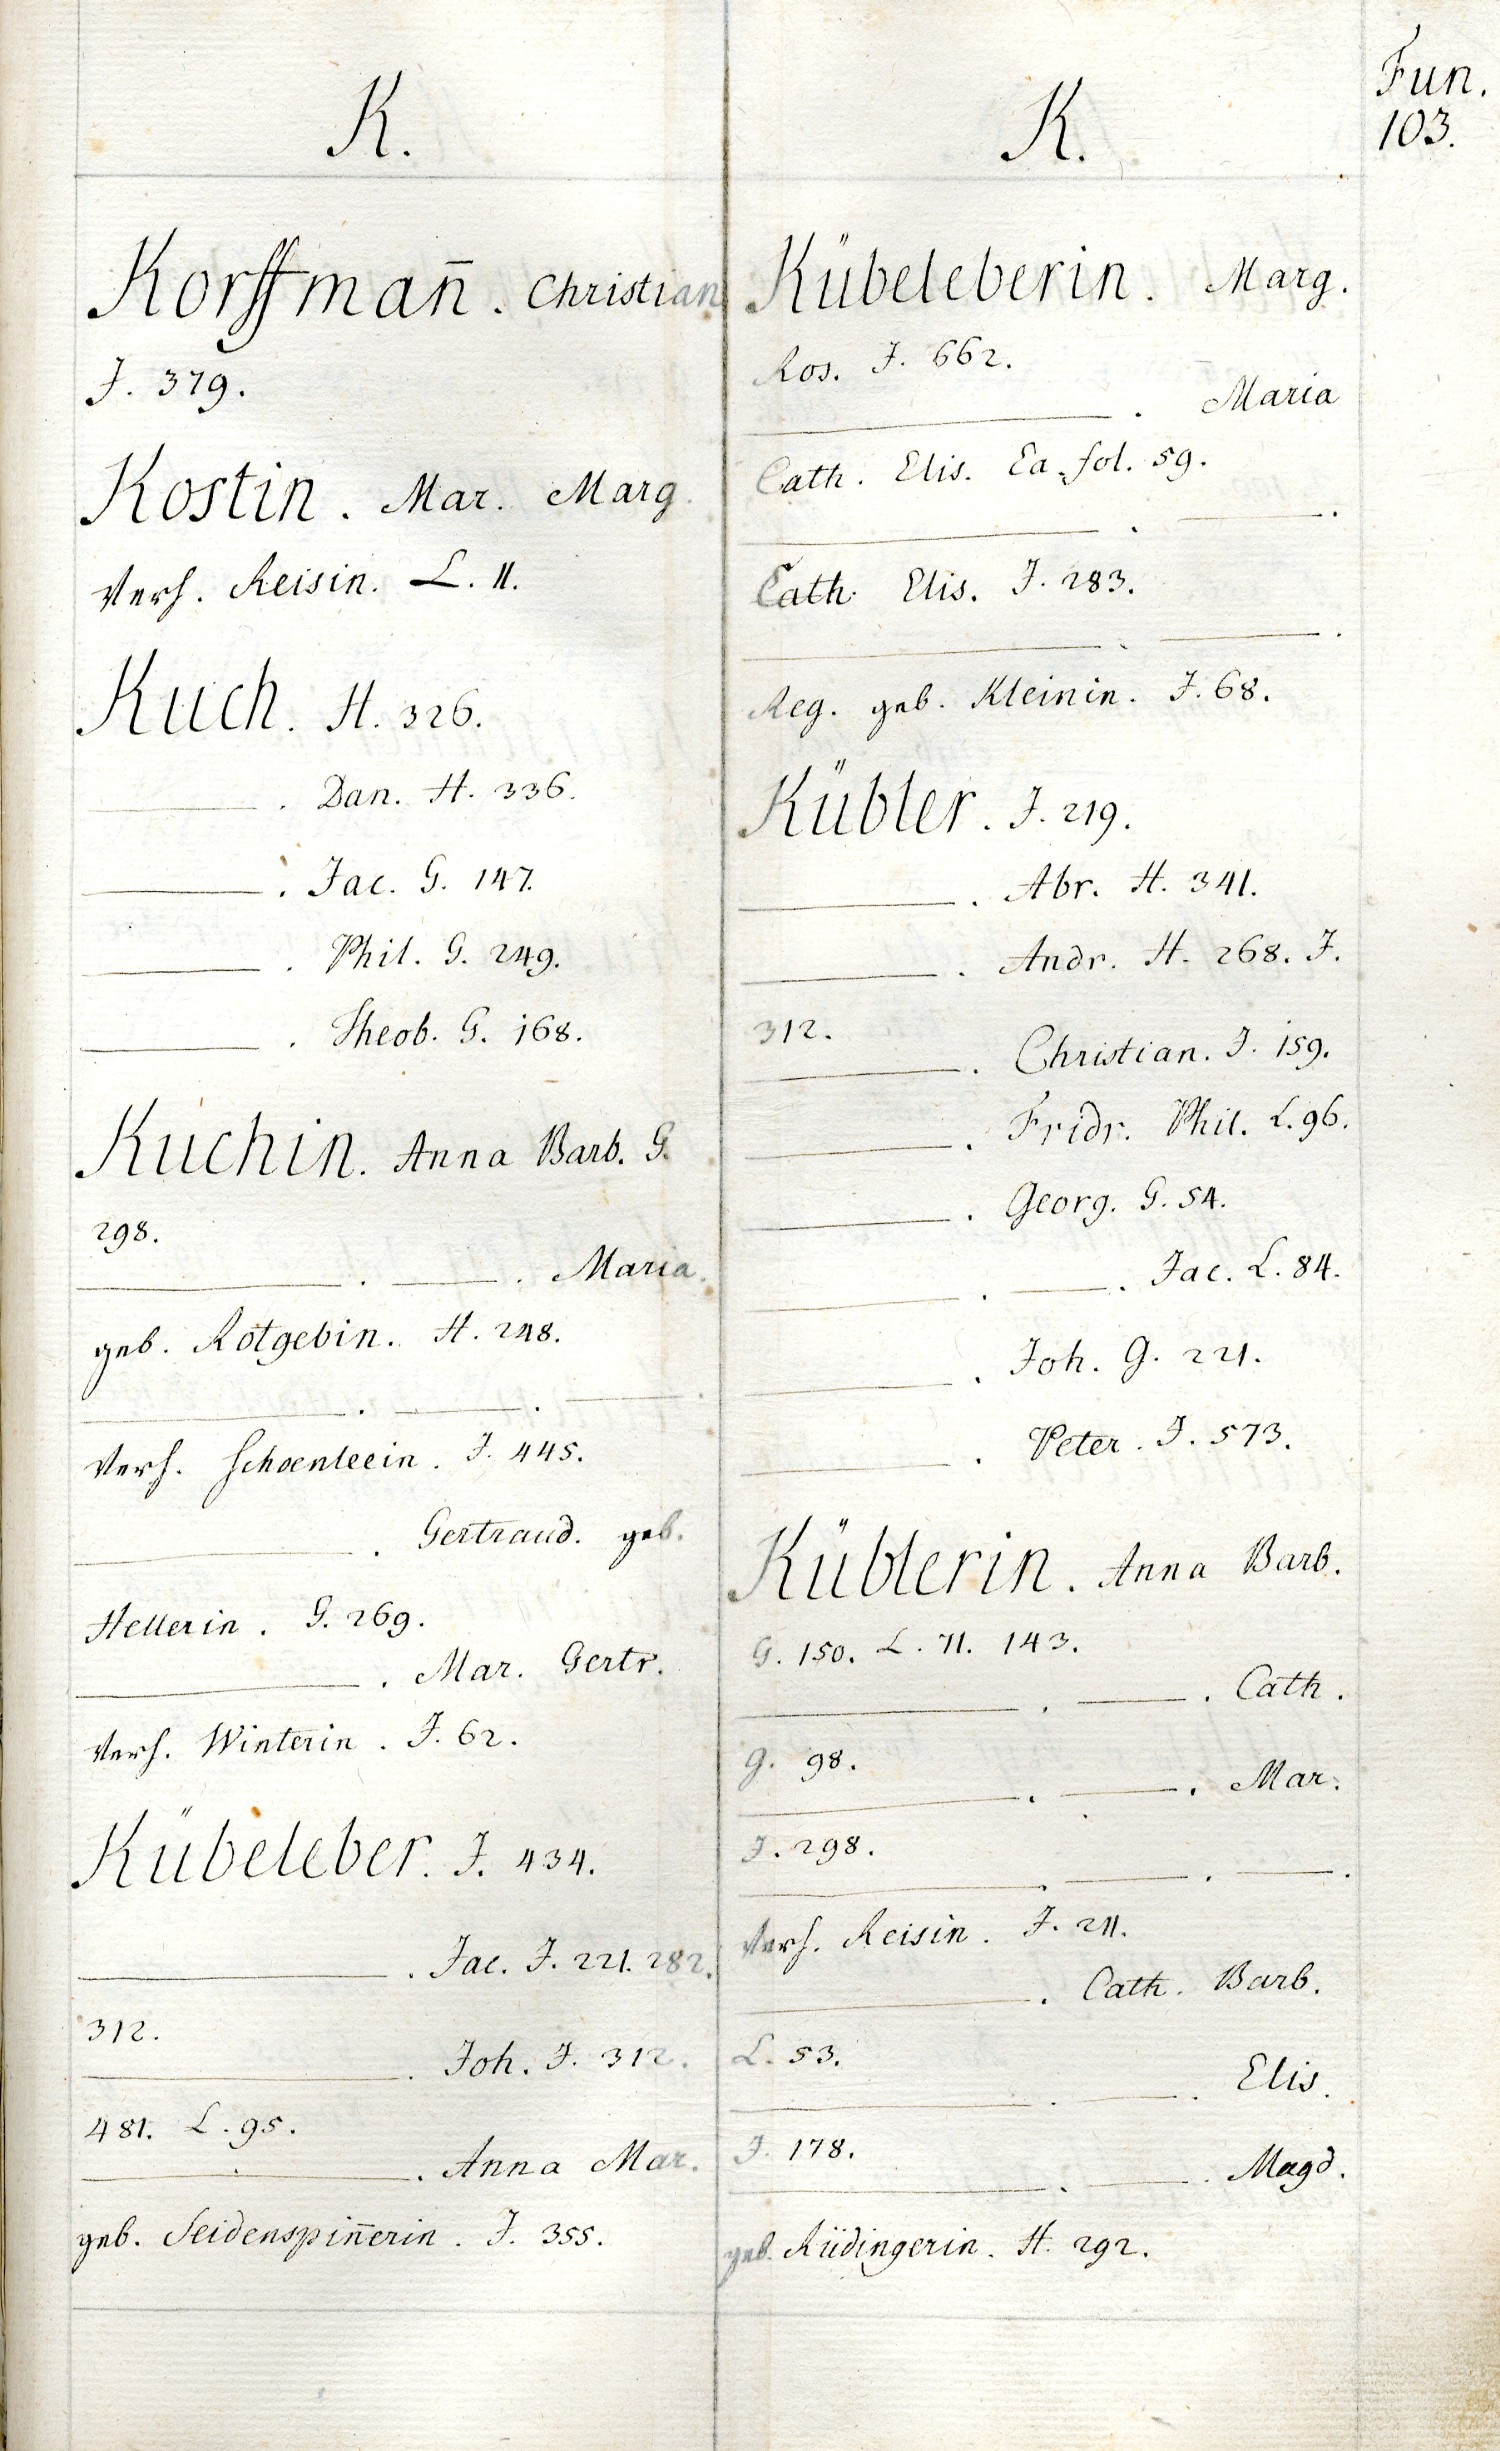 Fun.
103.
K.
Korffman̄. Christian
J. 379.
Kostin. Mar. Marg.
verh. Reisin. L. 11.
Kuch. H. 326.
———. Dan. H. 336.
———. Jac. G. 147.
———. Phil. G. 249.
———. Theob. G. 168.
Kuchin. Anna Barb. G.
298.
———. ———. Maria.
geb. Rotgebin. H. 248.
———. ———. ———.
verh. Schoenleein. J. 445.
———. Gertraud. geb.
Hellerin. G. 269.
———. Mar. Gertr.
verh. Winterin. J. 62.
Kübeleber. J. 434.
———. Jac. J. 221. 282.
312.
———. Joh. J. 312.
481. L. 95.
———. Anna Mar.
geb. Seidenspin̄erin. J. 355.
K.
Kübeleberin. Marg.
Ros. J. 662.
———. Maria
Cath. Elis. Ea. fol. 59.
———. ———.
Cath. Elis. J. 283.
———. ———.
Reg. geb. Kleinin. J. 68.
Kübler. J. 219.
———. Abr. H. 341.
———. Andr. H. 268. J.
312.
———. Christian. J. 159.
———. Fridr. Phil. L. 96.
———. Georg. G. 54.
———. ———. Jac. L. 84.
———. Joh. G. 221.
———. Peter. J. 573.
Küblerin. Anna Barb.
G. 150. L. 71. 143.
———. ———. Cath.
G. 98.
———. ———. Mar.
J. 298.
———. ———. ———.
verh. Reisin. J. 211.
———. Cath. Barb.
L. 53.
———. ———. Elis.
J. 178.
———. ———. Magd.
geb. Rüdingerin. H. 292.